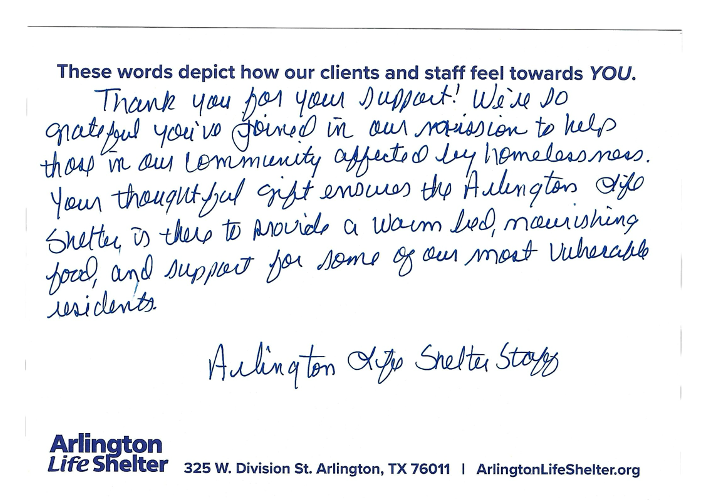 These words depict how our clients and staff feel towards YOU.
Thank you for your support! We're so
grateful you've joined in our mission to help
those in our community affected by homelessness.
Your thoughtful gift ensures the Arlington Life
Shelter is there to provide a warm bed, nourishing
food, and support for some of our most vulnerable
residents.
Arlington Life Shelter Staff
Arlington
Life Shelter
325 W. Division St. Arlington, TX 76011 | ArlingtonLifeShelter.org